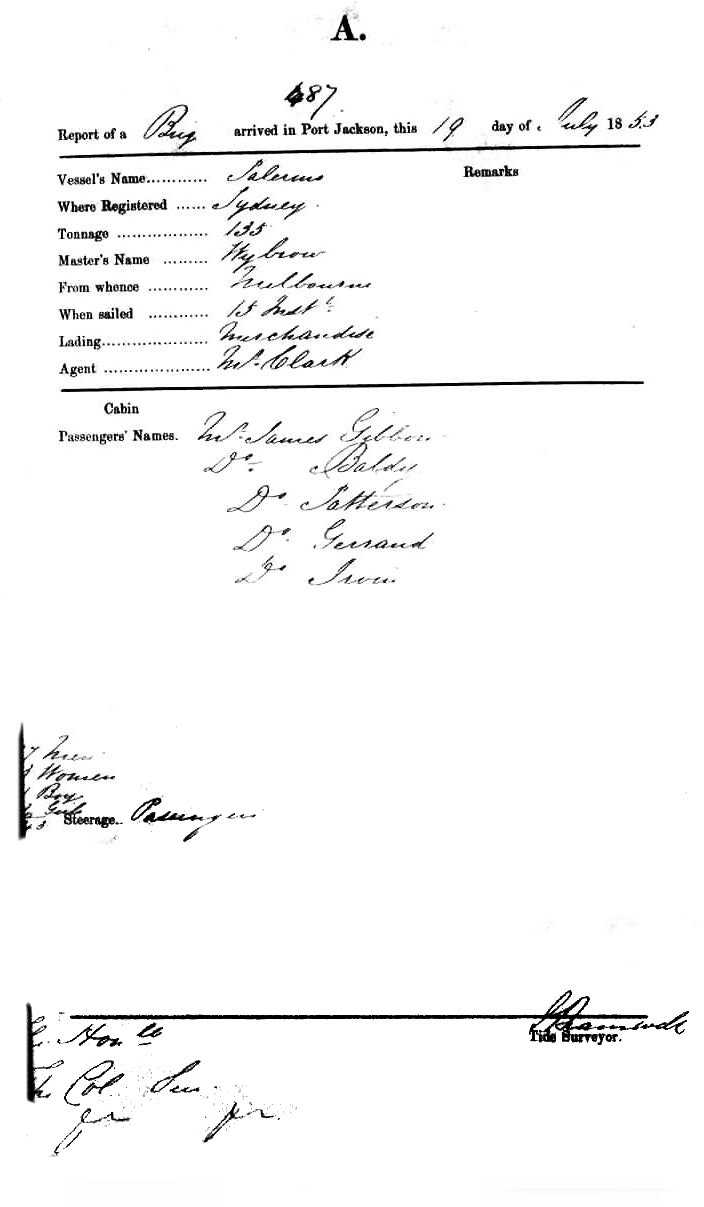 A.
487
Report of a Brig arrived in Port Jackson, this 19 day of July 1853
Vessel's Name............ Salerno Remarks
Where Registered ...... Sydney.
Tonnage .................. 135
Master's Name ......... Wybrow
From whence ............ Melbourne
When sailed ............ 15 Inst.
Lading..................... Merchandise
Agent ..................... Mr. Clark
Cabin
Passengers' Names. Mr. James Gibbon
Do. Baldy
Do Patterson
Do. Gerrand
Do Irvin
Men
Women
Boy
Girls
Steerage.. Passengers
Honble
Tide Surveyor.
The Col. Sec.